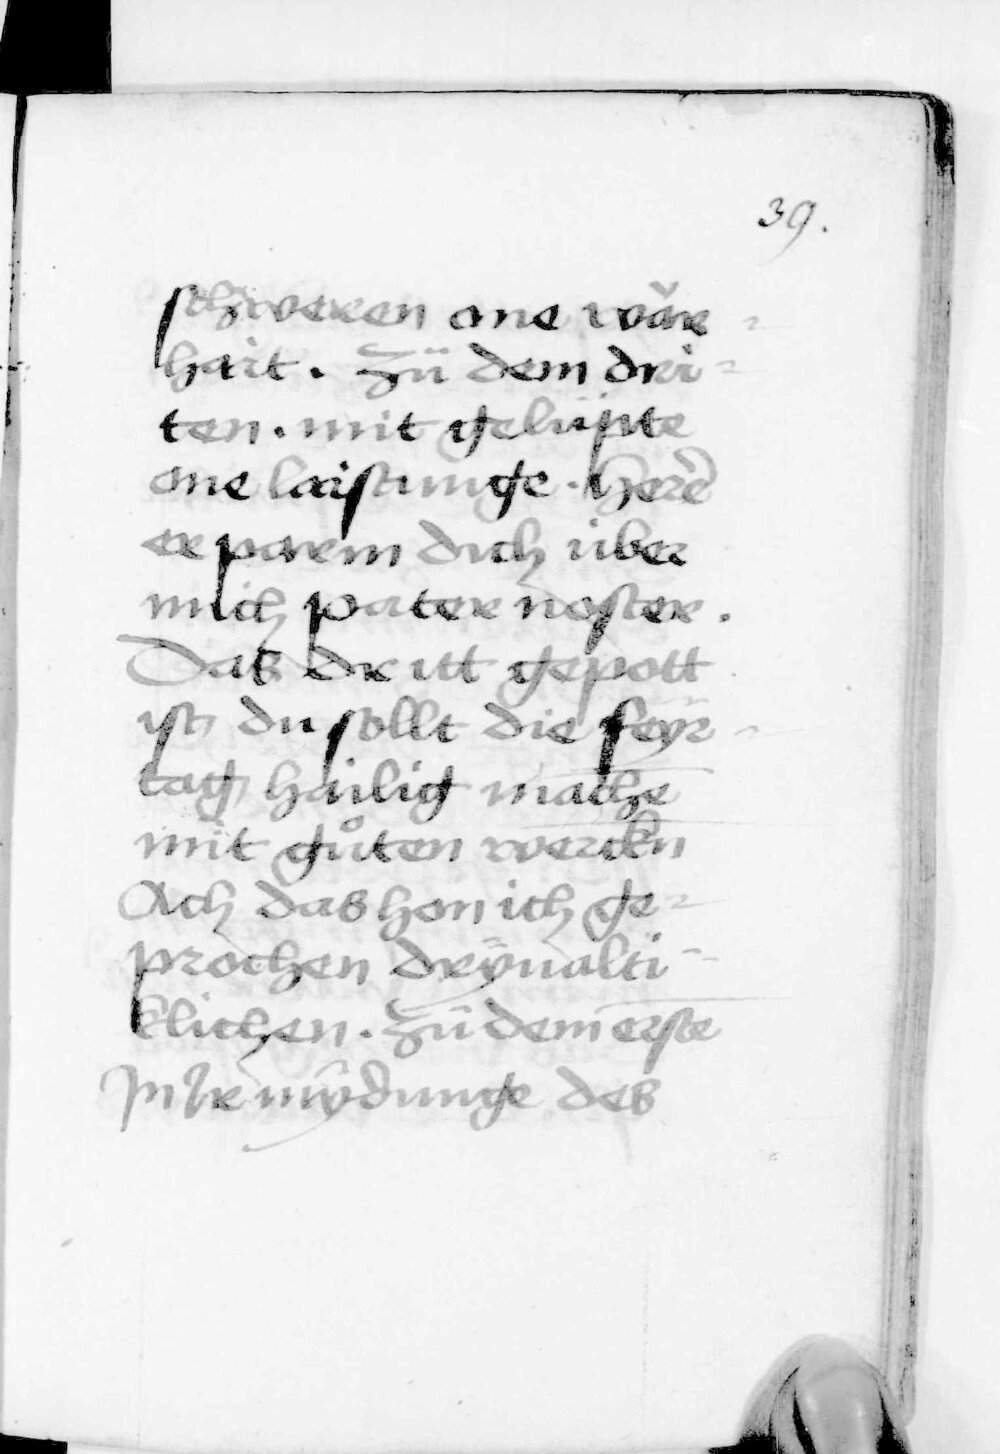 39.
schweren one wăr-
hait. Zü dem dri-
ten. mit gelüpte
one laistunge. herē
erparm dich über
mich pater noster.
Das dritt gepott
ist du sollt die feÿr-
tag hailig mache
mit gůten werckn
Ach das hon ich ge-
prochen drÿualti-
klichen. Zü dem erste
In Ir mÿdunge des